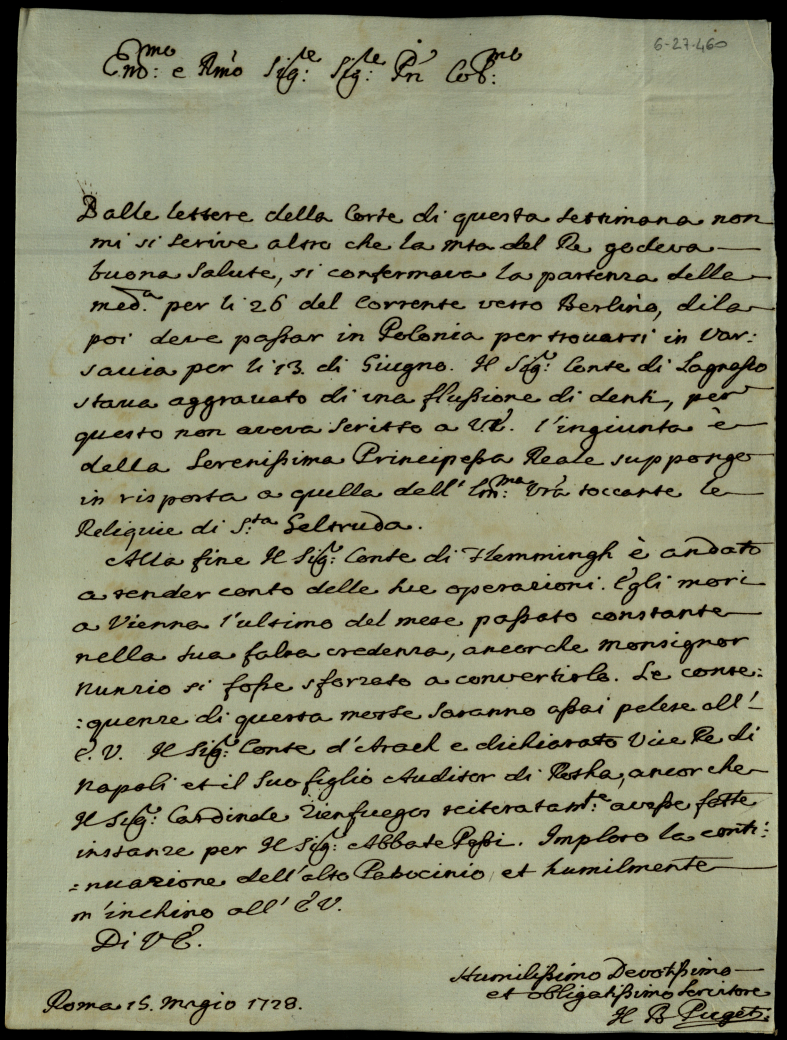 6-27-460
Emo: e Rmo Sigre: Sigre: Pn Colmo:
Dalle lettere della Corte di questa settimana non
mi si scrive altro che la Mta del Re godeva
buona salute, si confermava la partenza della
meda: per li 26 del Corrente verso Berlino, di la
poi deve passar in Polonia per trovarsi in Var:
savia per li 13. di Giugno. Il Sigr: Conte di Lagnasco
stava aggravato di una flussione di denti, per
questo non aveva scritto a V.E. l'ingiunta è
della Serenissima Principessa Reale suppongo
in risposta a quella dell' Emma: Vra toccante le
Reliquie di Sta Geltruda.
Alla fine Il Sigr: Conte di Flemmingh è andato
a render conto delle sue operazioni. Egli morì
a Vienna l'ultimo del mese passato constante
nella sua falsa credenza, ancorche monsignor
Nunzio si fosse sforzato a convertirlo. Le conse:
:quenze di questa morte saranno assai palese all'
E.V. Il Sigr: Conte d'Arach e dichiarato Vice Re di
Napoli et il suo figlio Auditor di Rotha, ancorche
Il Sigr: Cardinale Zienfuegos reiteratamte: avesse fatte
instanze per Il Sigr: Abbate Passi. Imploro la conti:
:nuazione dell'alto Patrocinio, et humilmente
m'inchino all' E.V.
Di V.E.
Humilissimo Devotissimo
et obligatissimo Servitore
Il B Puget.
Roma 15. Magio 1728.